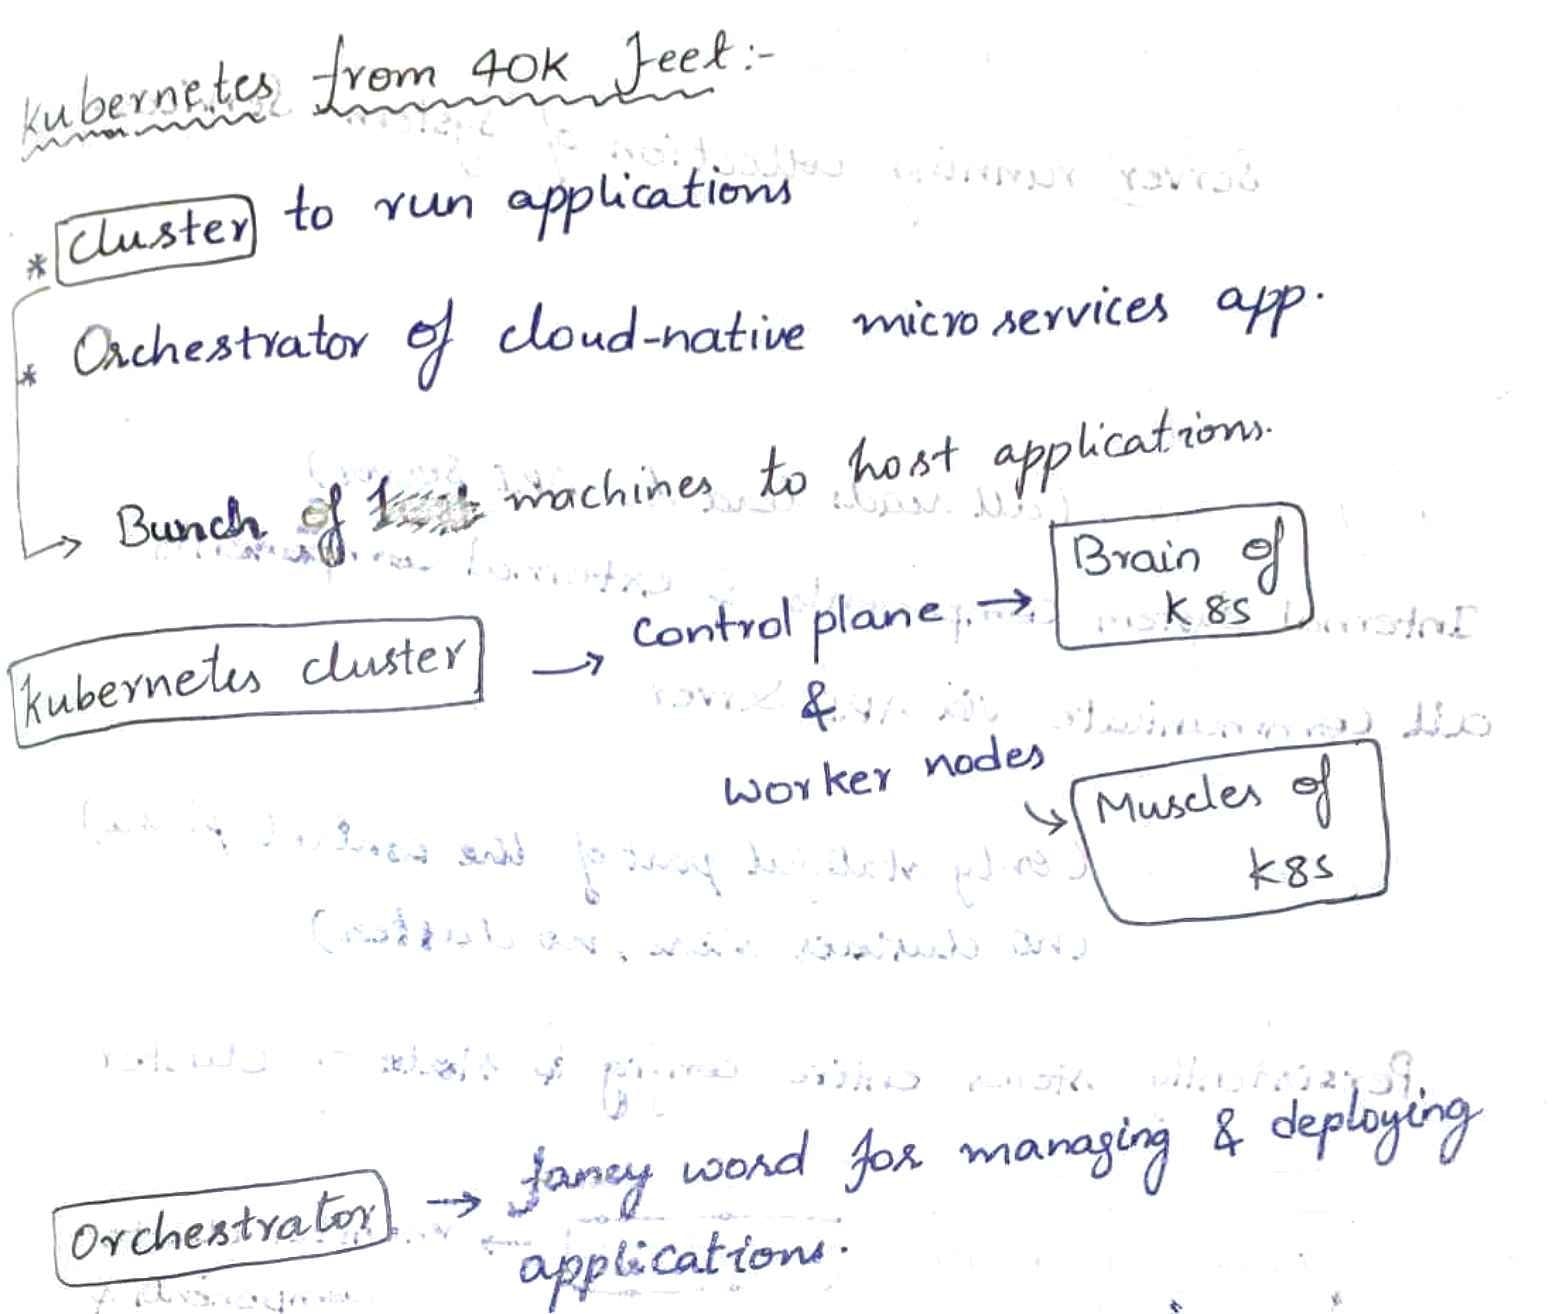 Kubernetes from 40K feet:-
* cluster to run applications
* Orchestrator of cloud-native microservices app.
→ Bunch of machines to host applications.
Kubernetes cluster → control plane → Brain of K8s
&
worker nodes → Muscles of K8s
Orchestrator → fancy word for managing & deploying
applications.